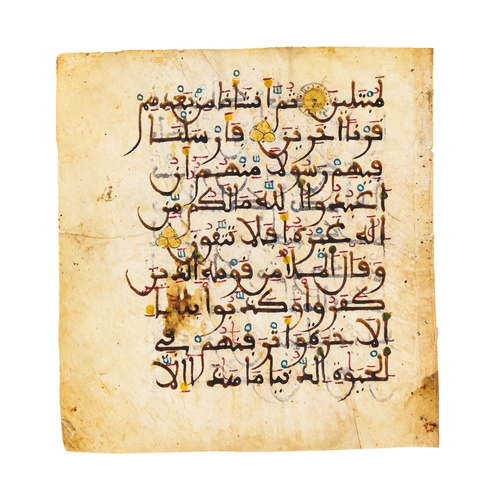 لمبتلين ثم انشانا من بعدهم
قرنا اخرين فارسلنا
فيهم رسولا منهم ان
اعبدوا الله ما لكم من
اله غيره افلا تتقون
وقال الملا من قومه الذين
كفروا وكذبوا بلقا
الاخرة واترفنهم في
الحيوة الدنيا ما هذا الا